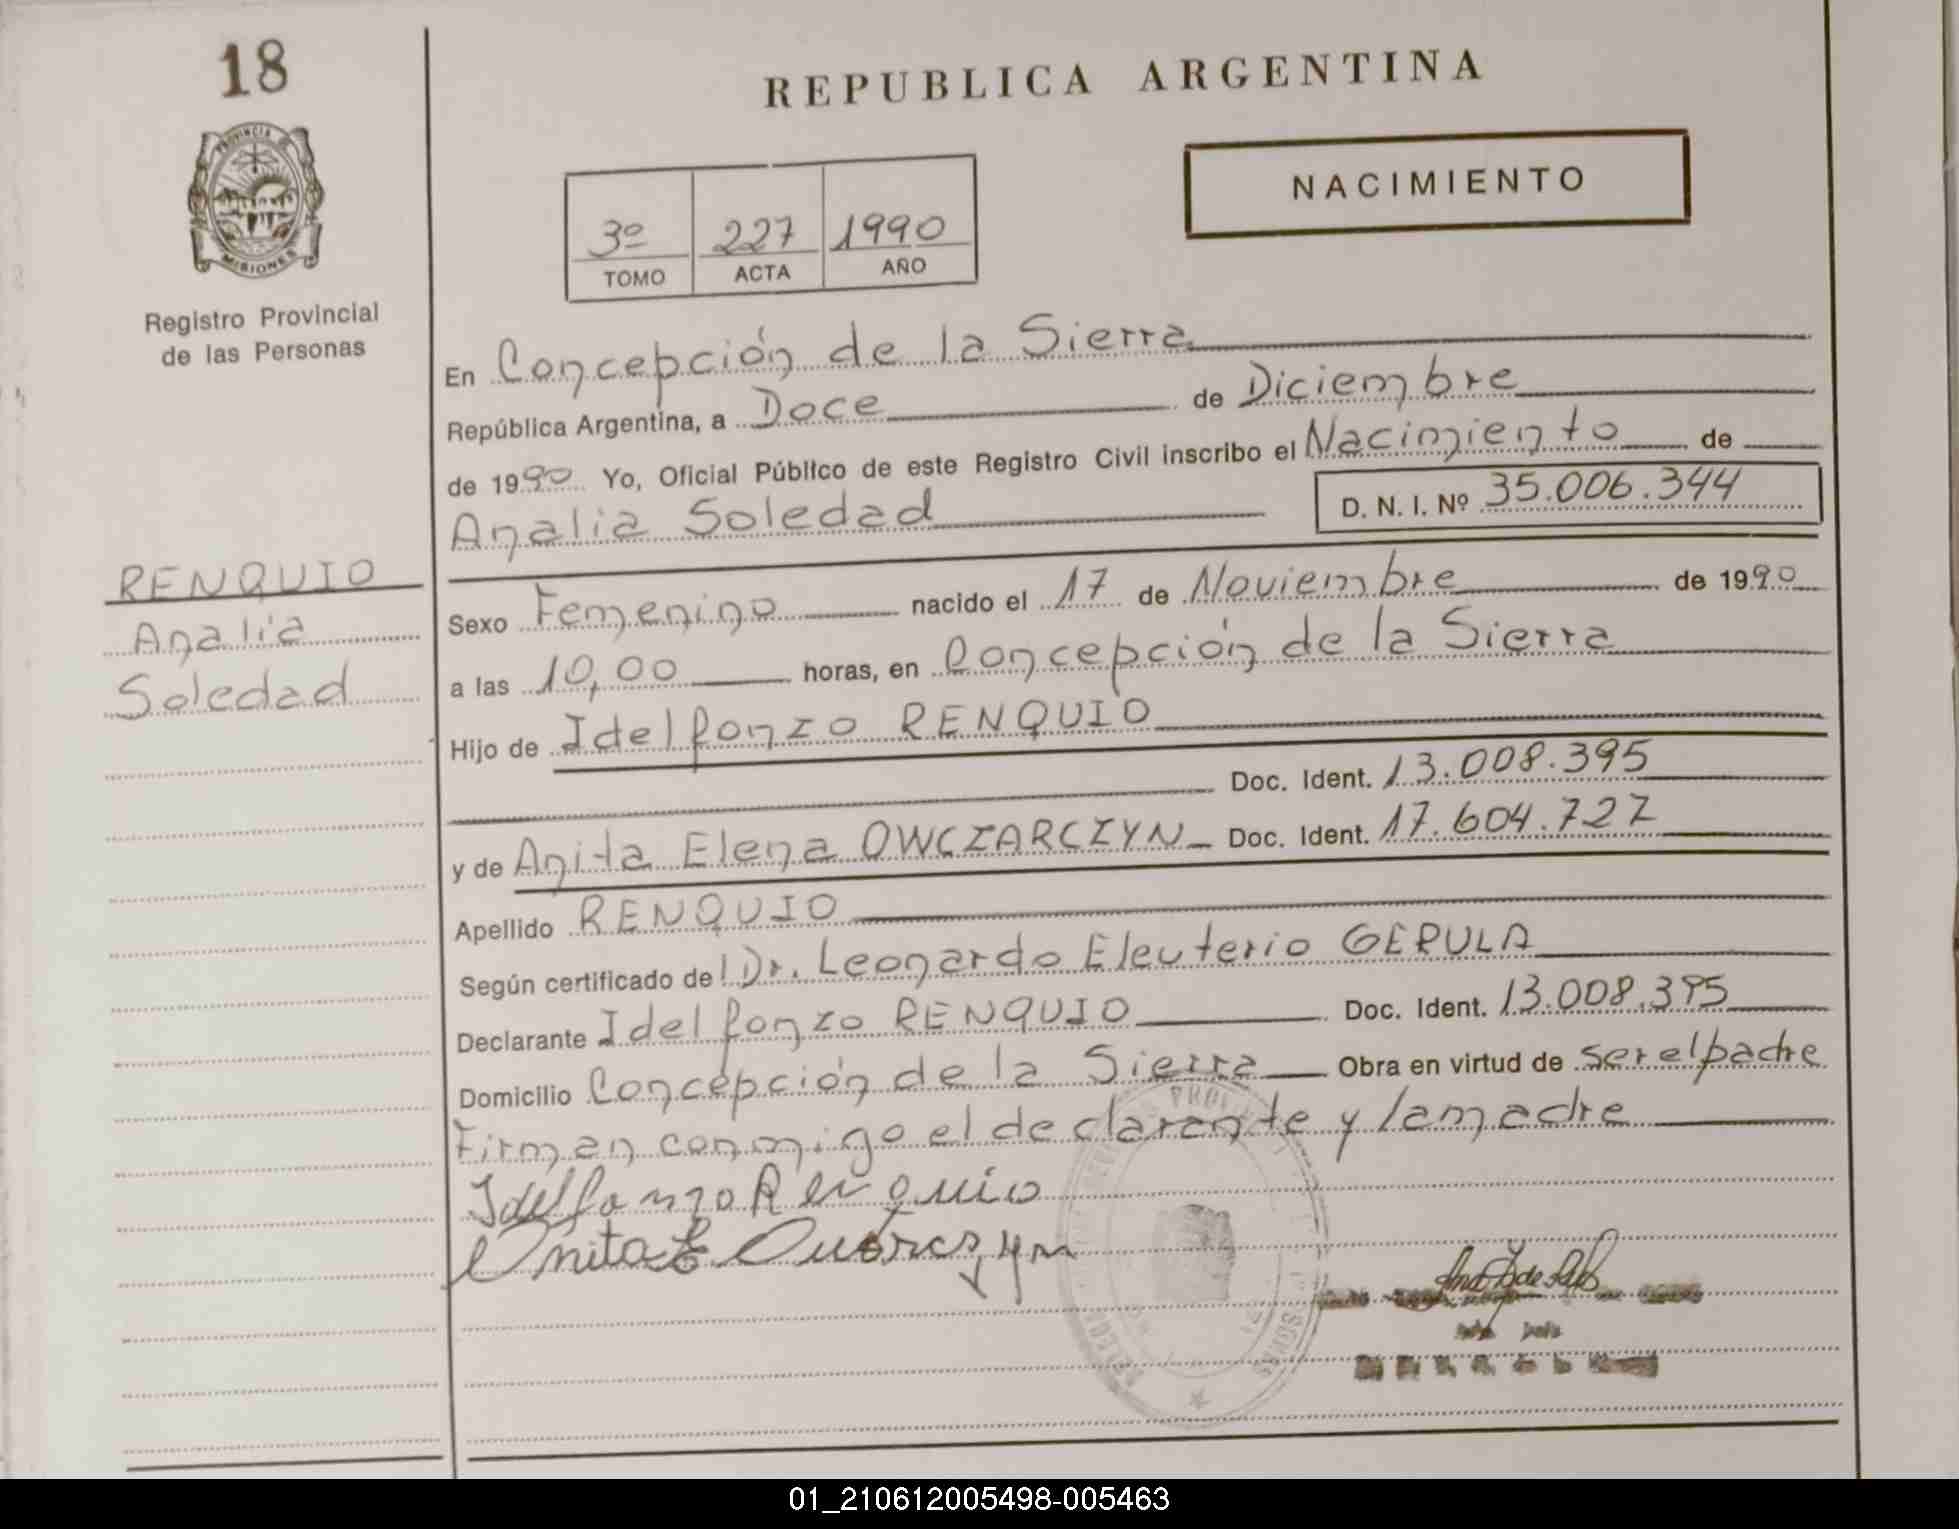 18
PROVINCIA DE
MISIONES
Registro Provincial
de las Personas
RENQUIO
Analia
Soledad
REPUBLICA ARGENTINA
NACIMIENTO
3º 227 1990
TOMO ACTA AÑO
En Concepción de la Sierra
República Argentina, a Doce de Diciembre
de 1990 Yo, Oficial Público de este Registro Civil inscribo el Nacimiento de
Analia Soledad D. N. I. Nº 35.006.344
Sexo Femenino nacido el 17 de Noviembre de 1990
a las 10,00 horas, en Concepción de la Sierra
Hijo de Idelfonzo RENQUIO
Doc. Ident. 13.008.395
y de Anita Elena OWCZARCZYN Doc. Ident. 17.604.727
Apellido RENQUIO
Según certificado de Dr. Leonardo Eleuterio GERULA
Declarante Idelfonzo RENQUIO Doc. Ident. 13.008.395
Domicilio Concepción de la Sierra Obra en virtud de ser el padre
Firman conmigo el declarante y la madre
Idelfonzo Renquio
Anita E
01_210612005498-005463